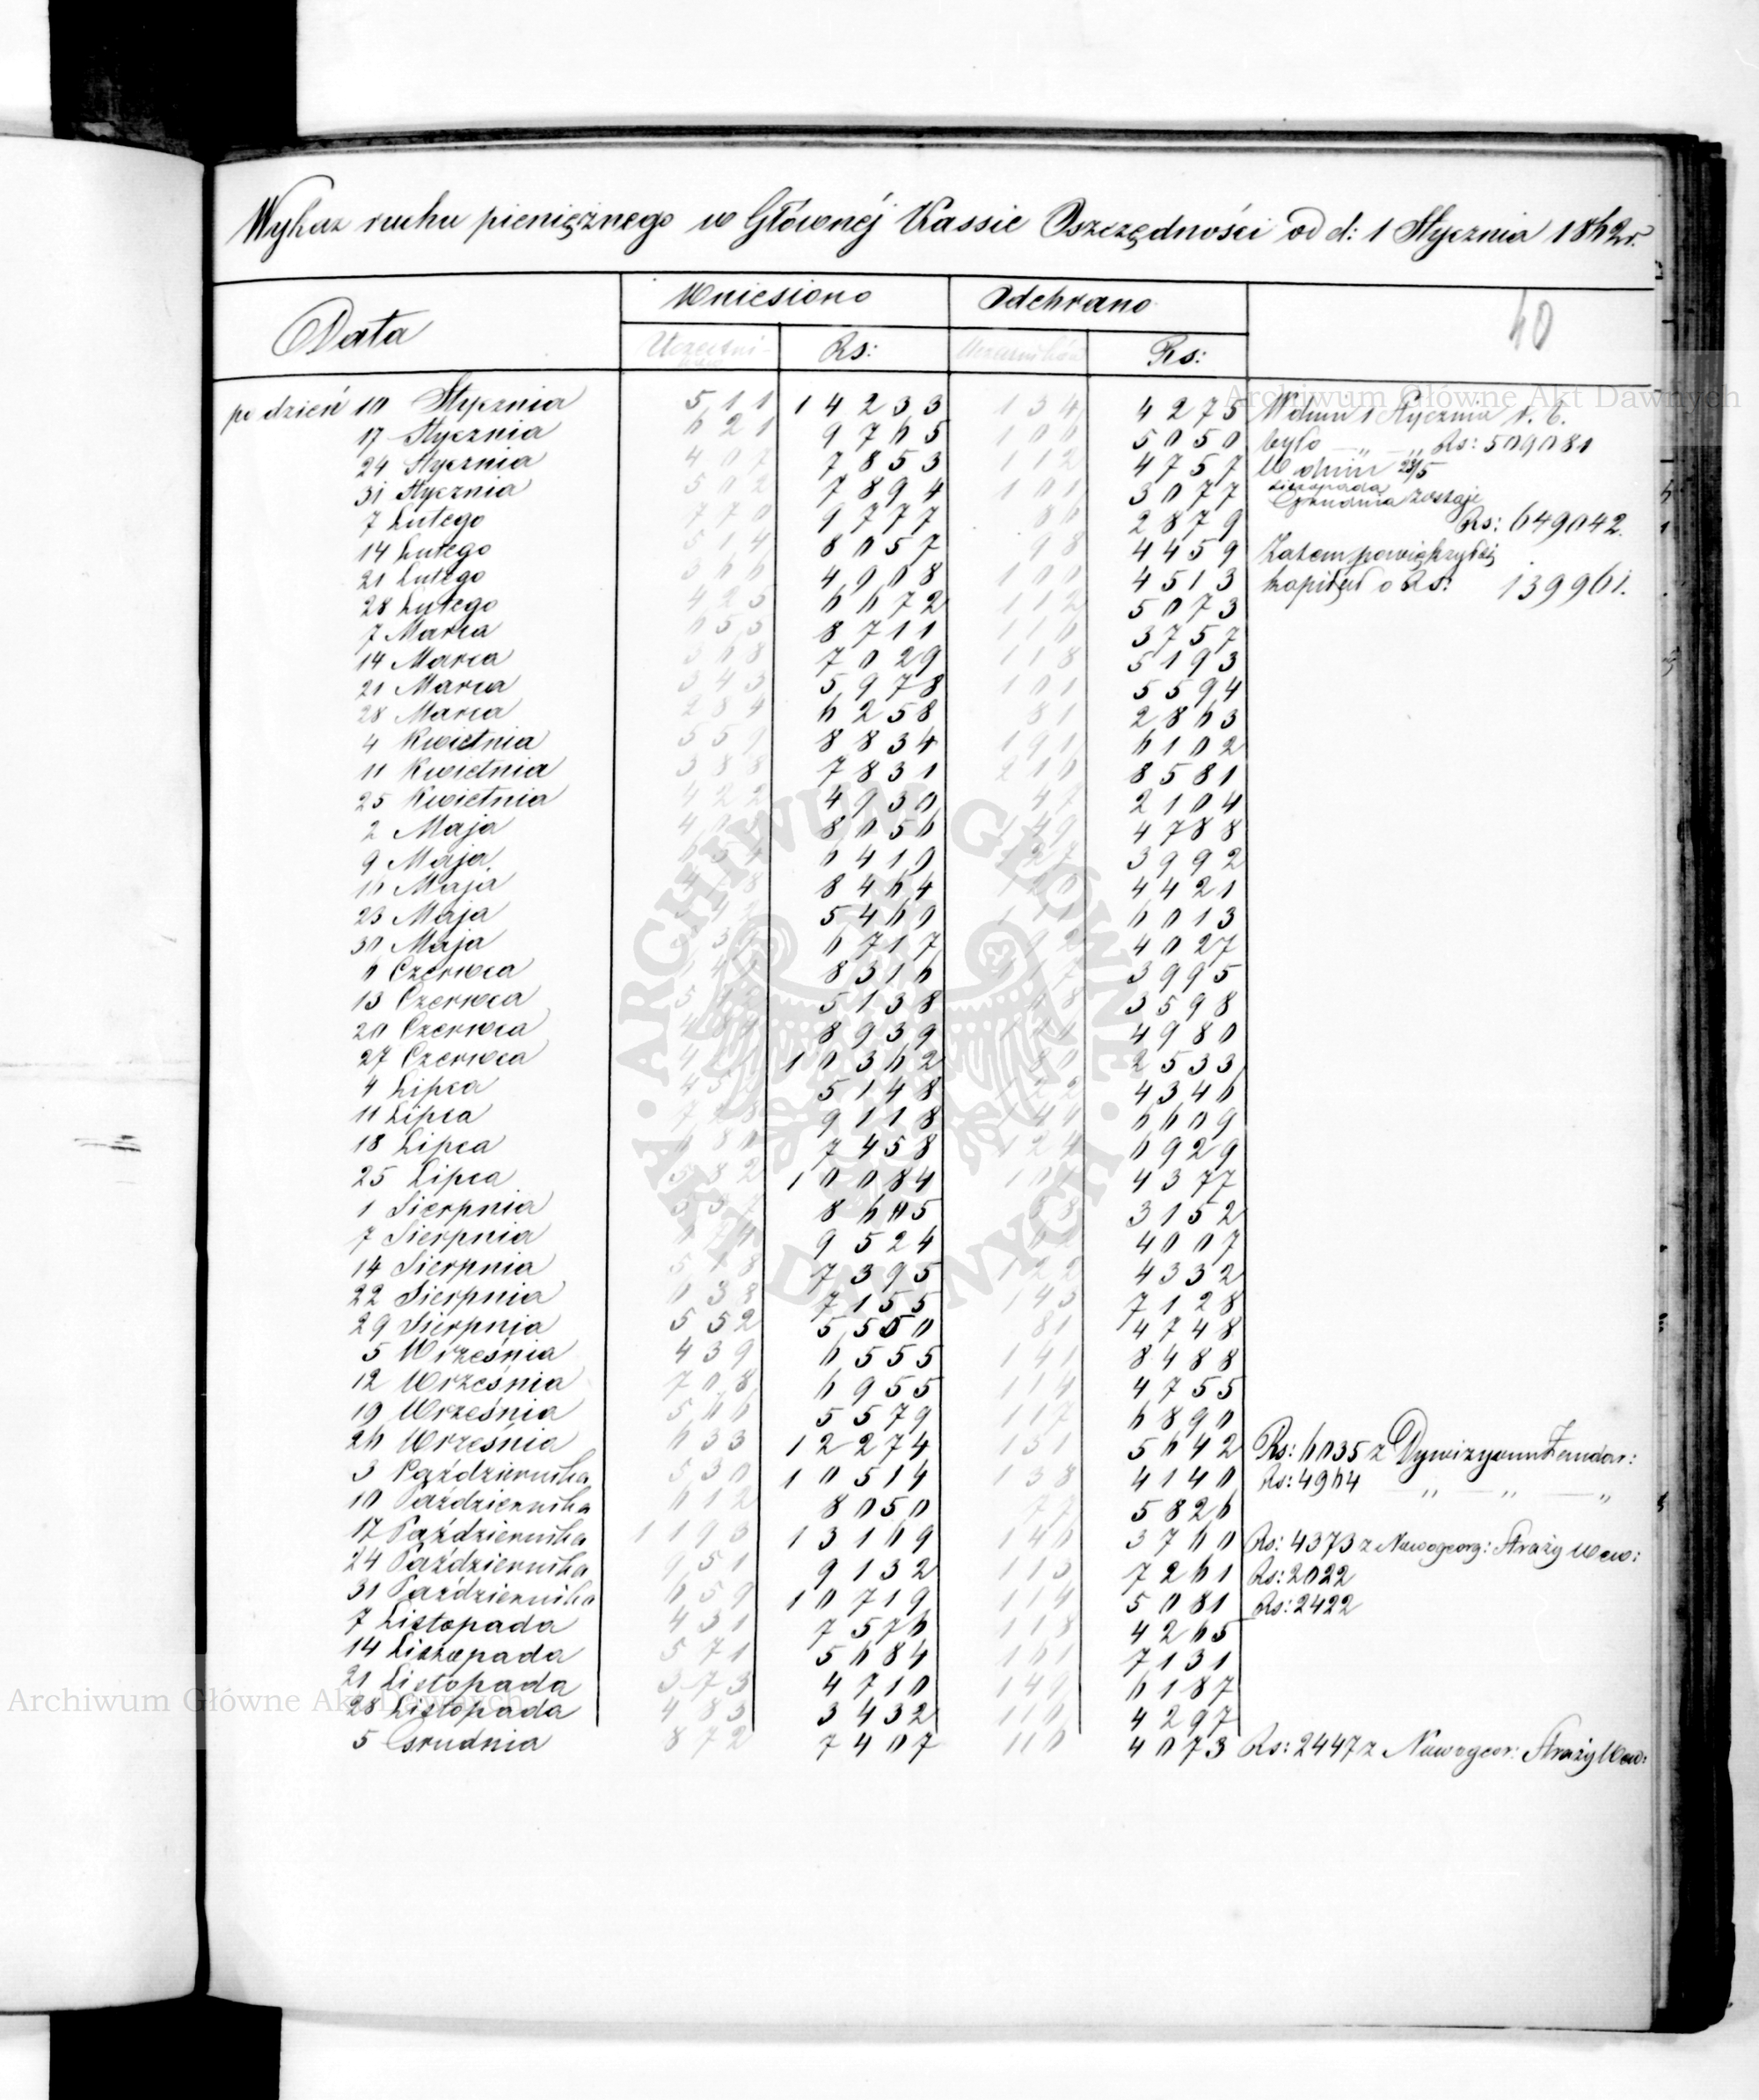 Wykaz ruchu pieniężnego w Głównéj Kassie Oszczędności od d: 1 Stycznia 1862 r.
Data Wniesiono Odebrano 60
Uczestników Rs: Uczestników Rs:
po dzień 10 Stycznia 511 14233 134 4275 W dniu 1 Stycznia r. b.
17 Stycznia 621 9765 106 5050 było — „ — „ Rs: 509081
24 Stycznia 407 7853 112 4757 W dniu 28/5
31 Stycznia 502 7894 101 3077 Listopada Grudnia zostaje
7 Lutego 770 9777 86 2879 Rs: 649042.
14 Lutego 514 8057 98 4459 Zatem powiększył się
21 Lutego 366 4908 100 4513 kapitał o Rs: 139961.
28 Lutego 425 6672 112 5073
7 Marca 653 8711 116 3757
14 Marca 368 7029 118 5193
21 Marca 343 5978 101 5594
28 Marca 284 6258 81 2863
4 Kwietnia 559 8834 191 6102
11 Kwietnia 388 7831 216 8581
25 Kwietnia 422 4930 47 2104
2 Maja 8056 4788
9 Maja 6410 3992
16 Maja 8464 4421
23 Maja 5469 6013
30 Maja 6717 4027
6 Czerwca 8316 3995
13 Czerwca 5138 3598
20 Czerwca 8939 4980
27 Czerwca 10362 80 2533
4 Lipca 5148 122 4346
11 Lipca 9118 6609
18 Lipca 680 7458 124 6929
25 Lipca 582 10084 4377
1 Sierpnia 8605 3152
7 Sierpnia 9524 4007
14 Sierpnia 518 7395 122 4332
22 Sierpnia 638 7155 143 7128
29 Sierpnia 552 5550 81 4748
5 Września 439 6555 141 8488
12 Września 708 6955 114 4755
19 Września 566 5579 117 6890
26 Września 633 12274 131 5642 Rs: 6035 z Dywizyonu Żandar:
3 Października 530 10514 138 4140 Rs: 4964 — „ — „ — „
10 Października 612 8050 77 5826
17 Października 1193 13169 146 3760 Rs: 4373 z Nowogeorg: Straży Wew:
24 Października 951 9132 113 7261 Rs: 2022
31 Października 659 10719 114 5081 Rs: 2422
7 Listopada 431 7576 118 4265
14 Listopada 571 5684 161 7131
21 Listopada 373 4710 149 6187
28 Listopada 483 3432 116 4297
5 Grudnia 872 7407 110 4073 Rs: 2447 z Nowogeor: Straży Wew:
Archiwum Główne Akt Dawnych
ARCHIWUM GŁÓWNE AKT DAWNYCH
Archiwum Główne Akt Dawnych